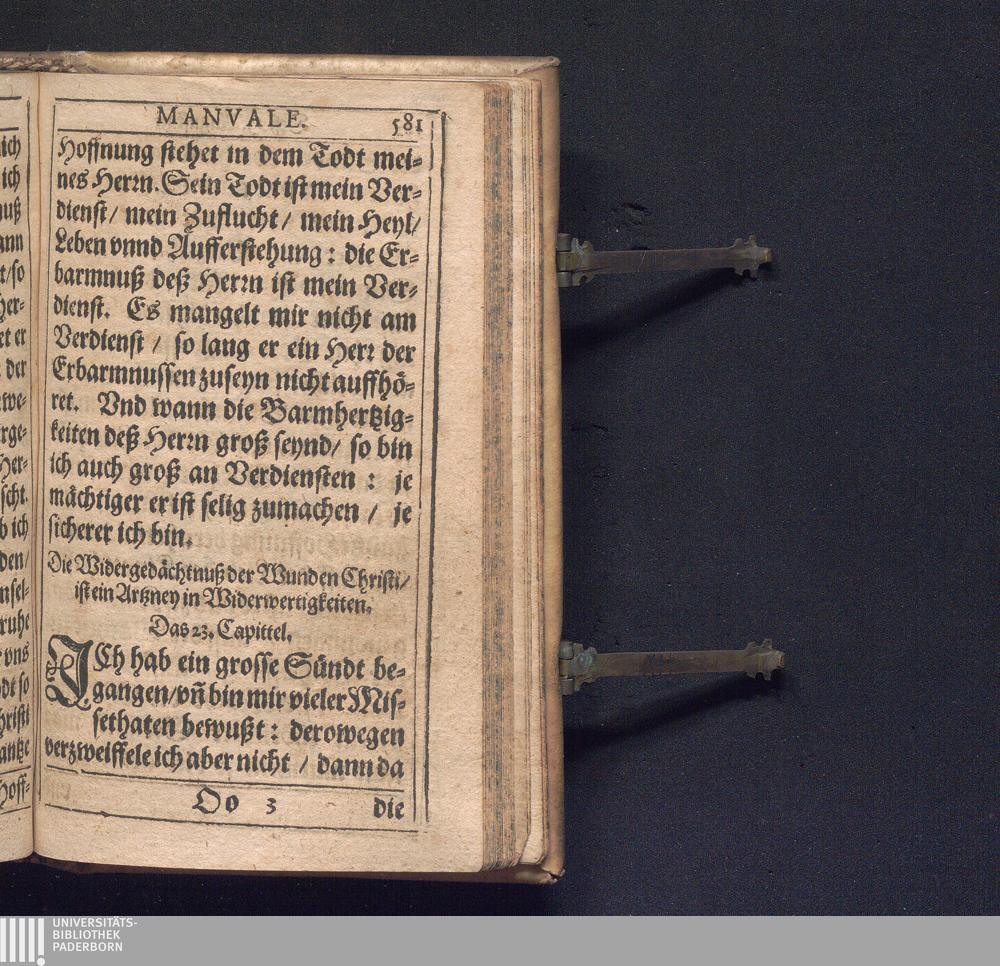 MANVALE. 581
Hoffnung stehet in dem Todt mei-
nes Herrn. Sein Todt ist mein Ver-
dienst / mein Zuflucht / mein Heyl /
Leben vnnd Aufferstehung : die Er-
barmnuß deß Herrn ist mein Ver-
dienst. Es mangelt mir nicht am
Verdienst / so lang er ein Herr der
Erbarmnussen zuseyn nicht auffhö-
ret. Vnd wann die Barmhertzig-
keiten deß Herrn groß seynd / so bin
ich auch groß an Verdiensten : je
mächtiger er ist selig zumachen / je
sicherer ich bin.
Die Widergedächtnuß der Wunden Christi /
ist ein Artzney in Widerwertigkeiten.
Das 23. Capittel.
ICh hab ein grosse Sündt be-
gangen / vñ bin mir vieler Mis-
sethaten bewußt : derowegen
verzweiffele ich aber nicht / dann da
Oo 3 die
ich
ich
nuß
ann
t / so
Her-
et er
der
we-
rge-
Her-
scht.
b ich
den /
nsel-
ruhe
vns
dt so
hristi
antze
Hoff-
UNIVERSITÄTS-
BIBLIOTHEK
PADERBORN